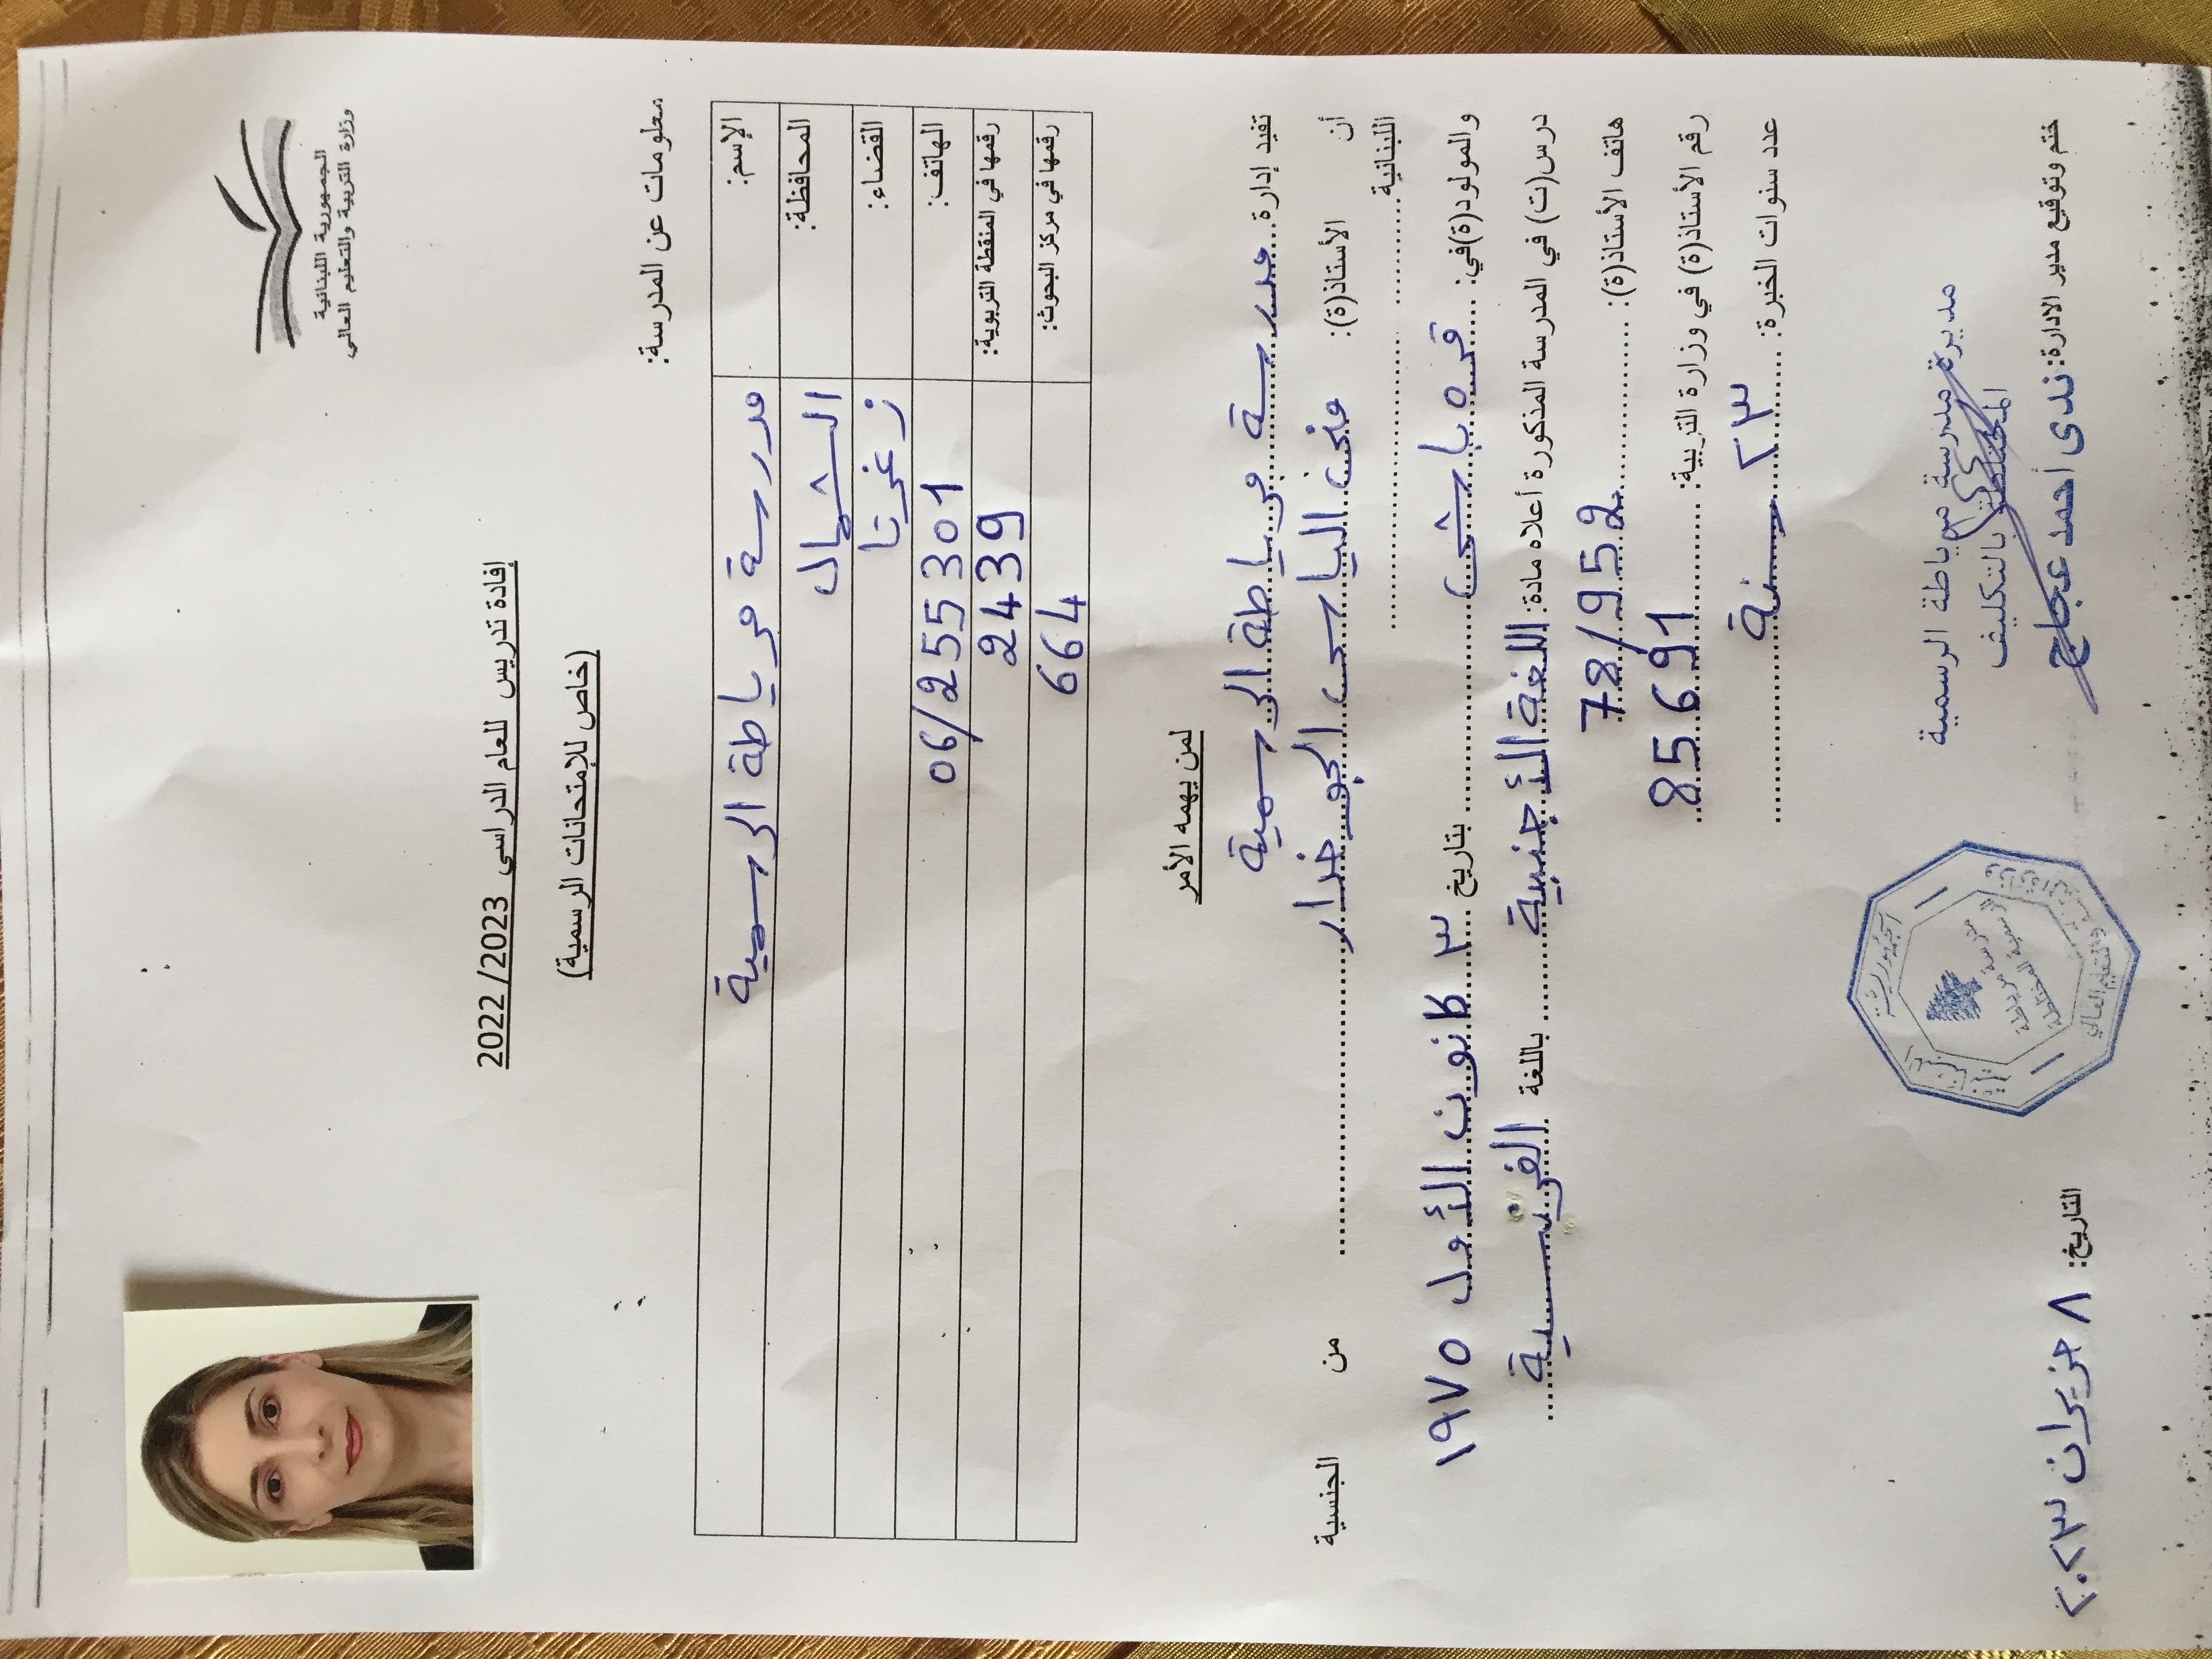 الجمهورية اللبنانية
وزارة التربية والتعليم العالي
إفادة تدريس للعام الدراسي 2022/2023
(خاص للإمتحانات الرسمية)
معلومات عن المدرسة:
الإسم: مدرسة مرياطة الرسمية
المحافظة: الشمال
القضاء: زغرتا
الهاتف: 06/255301
رقمها في المنقطة التربوية: 2439
رقمها في مركز البحوث: 664
لمن يهمه الأمر
تفيد إدارة... مدرسة مرياطة الرسمية
أن الأستاذ(ة): منى الياس الجوخدار من الجنسية
اللبنانية
والمولود(ة)في: قره باش بتاريخ ٣ كانون الأول ١٩٧٥
درس(ت) في المدرسة المذكورة أعلاه مادة: اللغة الأجنبية باللغة الفرنسية
هاتف الأستاذ(ة): 78/952
رقم الأستاذ(ة) في وزارة التربية: 85691
عدد سنوات الخبرة: ٢٣ سنة
مديرة مدرسة مرياطة الرسمية
المختلطة بالتكليف
ختم وتوقيع مدير الادارة: ندى أحمد عجاج
التاريخ: ٨ حزيران ٢٠٢٣
والتعليم العالي